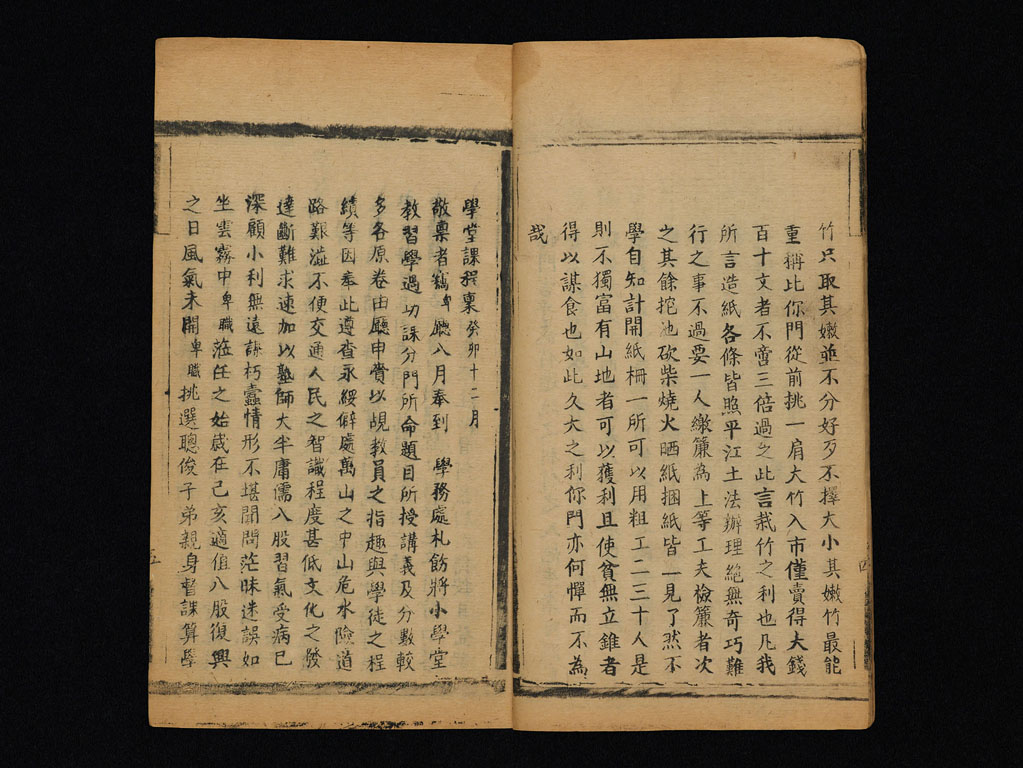 竹只取其嫩並不分好歹不擇大小其嫩竹最能
重稱比你門從前挑一肩大竹入市僅賣得大錢
百十文者不啻三倍過之此言栽竹之利也凡我
所言造紙各條皆照平江土法辦理絕無奇巧難
行之事不過要一人繳簾為上等工夫檢簾者次
之其餘挖池砍柴燒火晒紙捆紙皆一見了然不
學自知計開紙柵一所可以用粗工二三十人是
則不獨富有山地者可以獲利且使貧無立錐者
得以謀食也如此久大之利你門亦何憚而不為
哉
四
學堂課程稟癸卯十二月
敬稟者竊卑廳八月奉到 學務處札飭將小學堂
教習學過功課分門所命題目所授講義及分數較
多各原卷由廳申賫以覘教員之指趣與學徒之程
績等因奉此遵查永綏僻處萬山之中山危水險道
路艱澁不便交通人民之智識程度甚低文化之發
達斷難求速加以塾師大半庸儒八股習氣受病已
深顧小利無遠謀朽蠹情形不堪聞問茫昧迷誤如
坐雲霧中卑職蒞任之始歲在己亥適值八股復興
之日風氣未開卑職挑選聰俊子弟親身督課算學
五